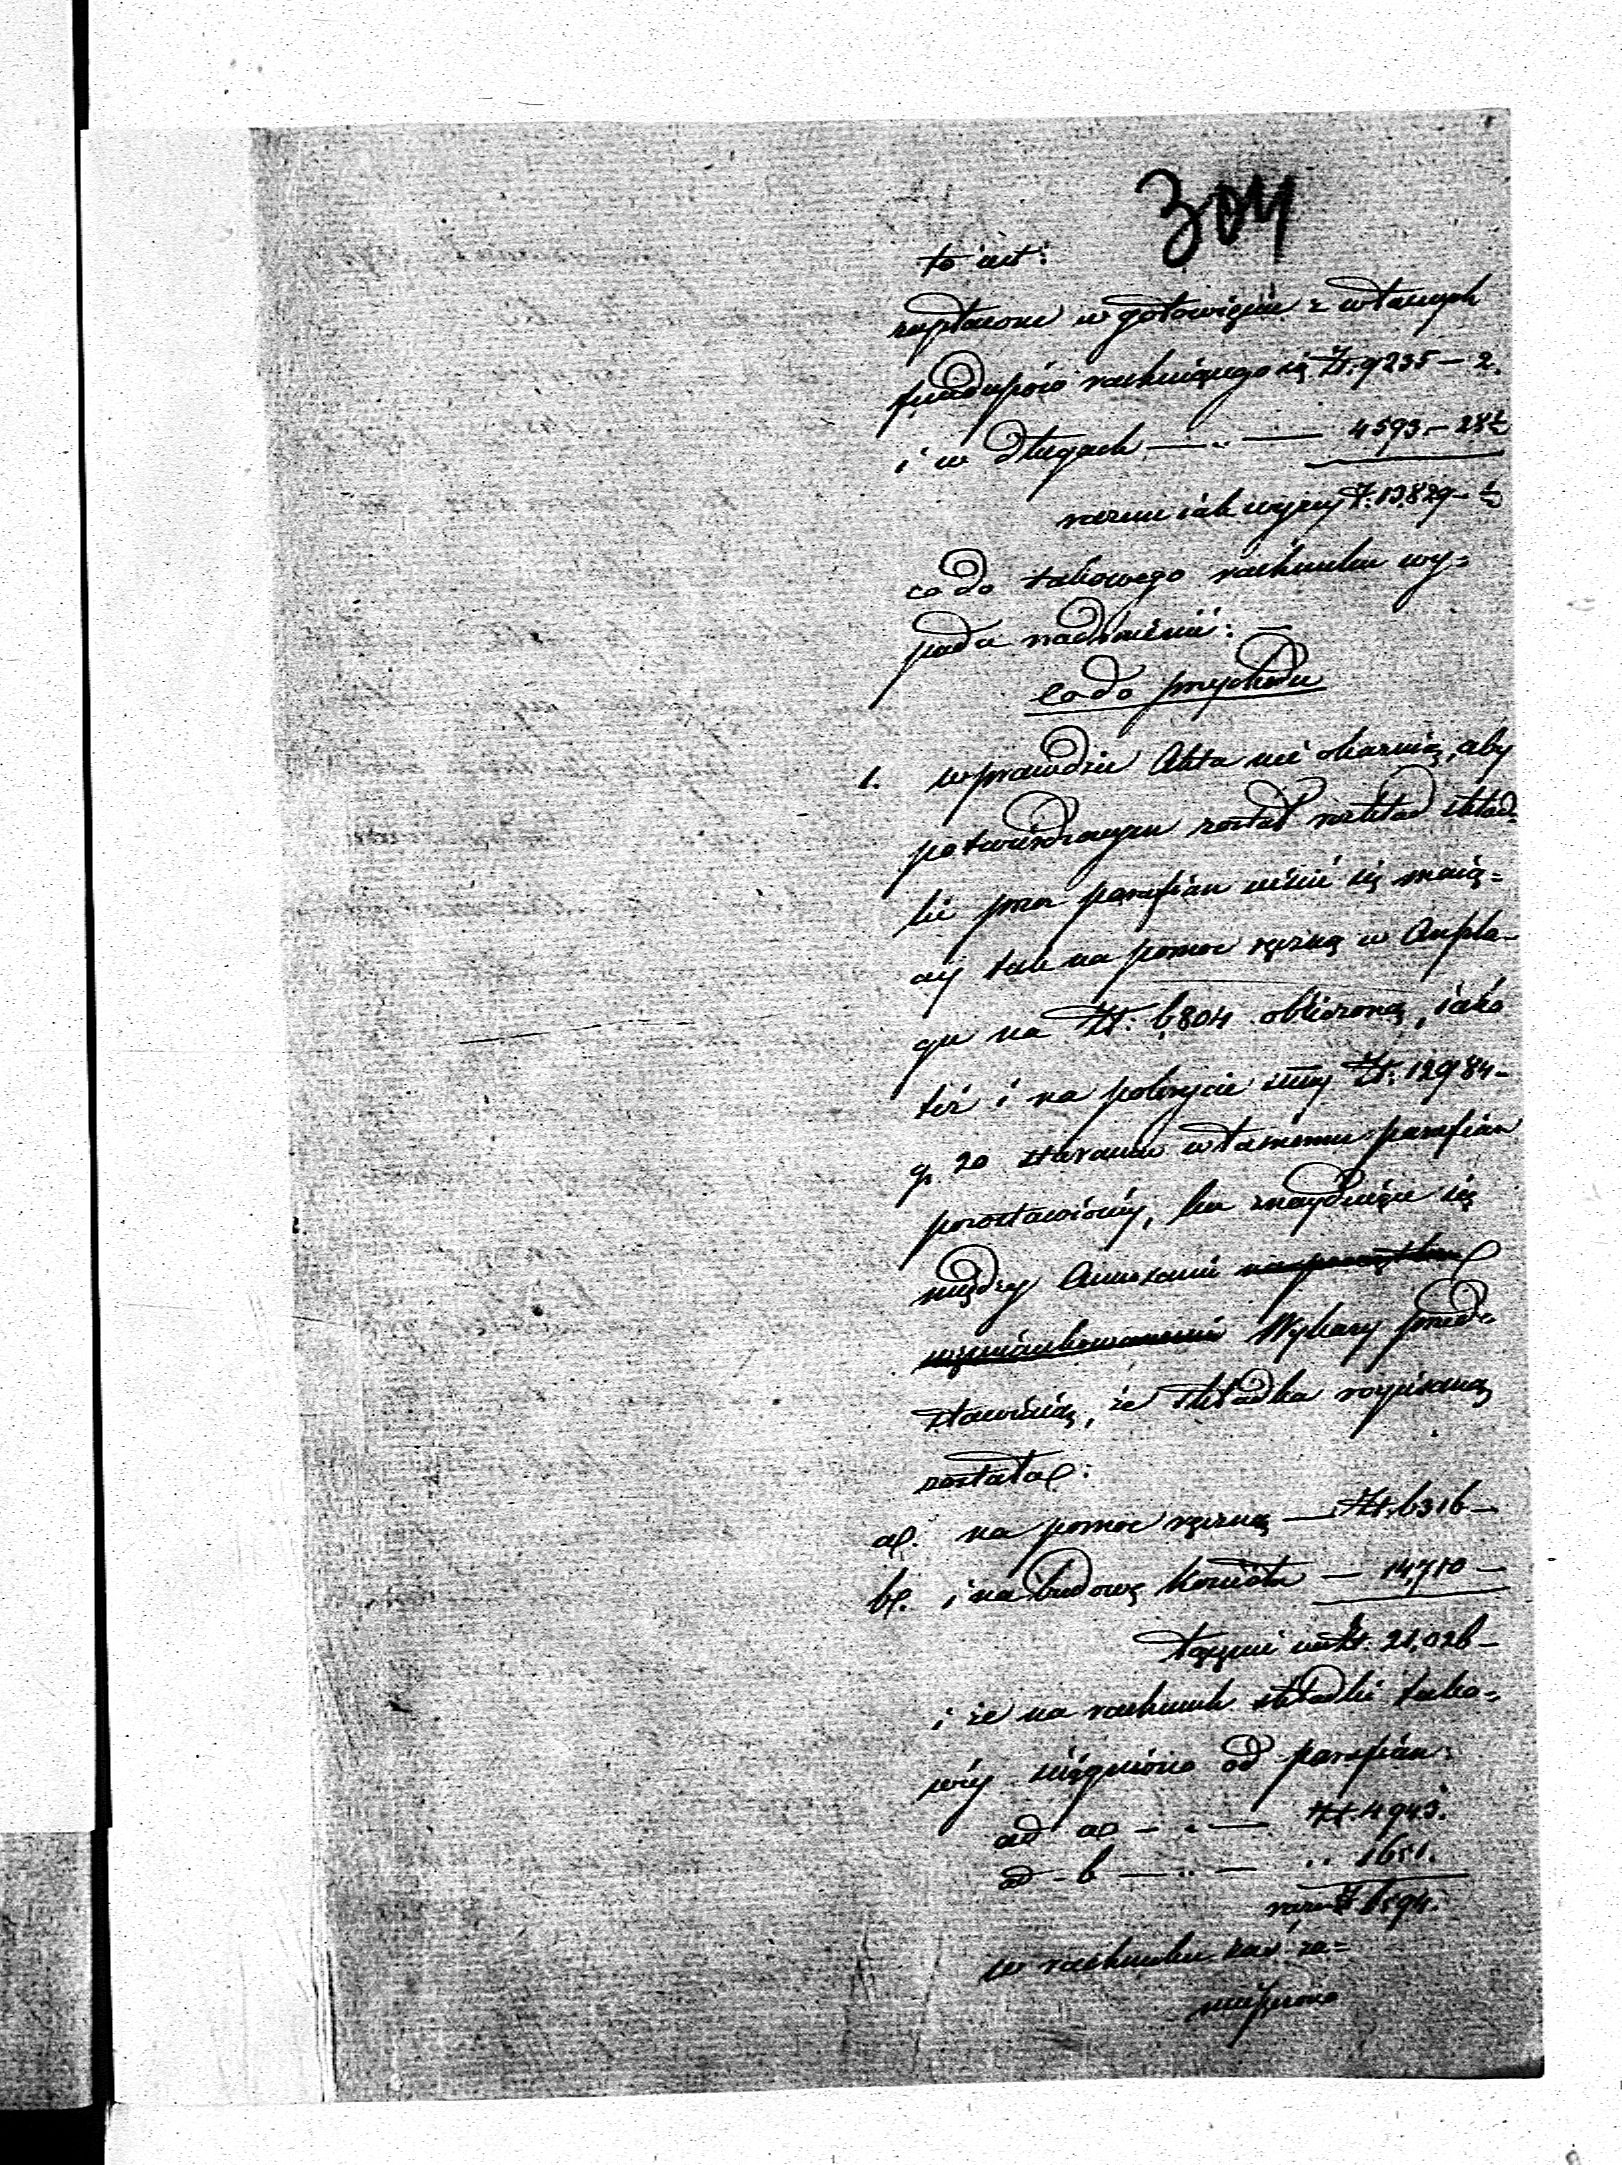 304
to iest:
zapłacone w gotowiźnie z własnych
funduszów rachuiącego się Zł. 9235 – 2.
i w długach — „ — 4593. – 28½
razem iak wyżey Zł. 13.829 – ½
co do takowego rachunku wy=
pada nadmienić: –
co do przychodu
1. wprawdzie Akta nie okazuią, aby
potwierdzonym został rozkład skład=
ki przez parafian uiścić się maią=
cey tak na pomoc ręczną w Anszla=
gu na Zł. 6804 obliczoną, iako
też i na pokrycie summy Zł. 12984 –
g. 20 staraniu własnemu parafian
pozostawioney, lecz znayduiące się
między Annexami
Wykazy przed=
stawiaią, że składka rozpisaną
została:
a/. na pomoc ręczną — Zł. 6316 –
b/. i na budowę Kościoła — 14,710 –
łącznie Zł. 21,026 –
i że na rachunek składki tako=
wey ściągniono od parafian:
ad a – „ — Zł. 4943.
ad – b — „ — „ 1651.
razem Zł. 6594.
w rachunku zaś za=